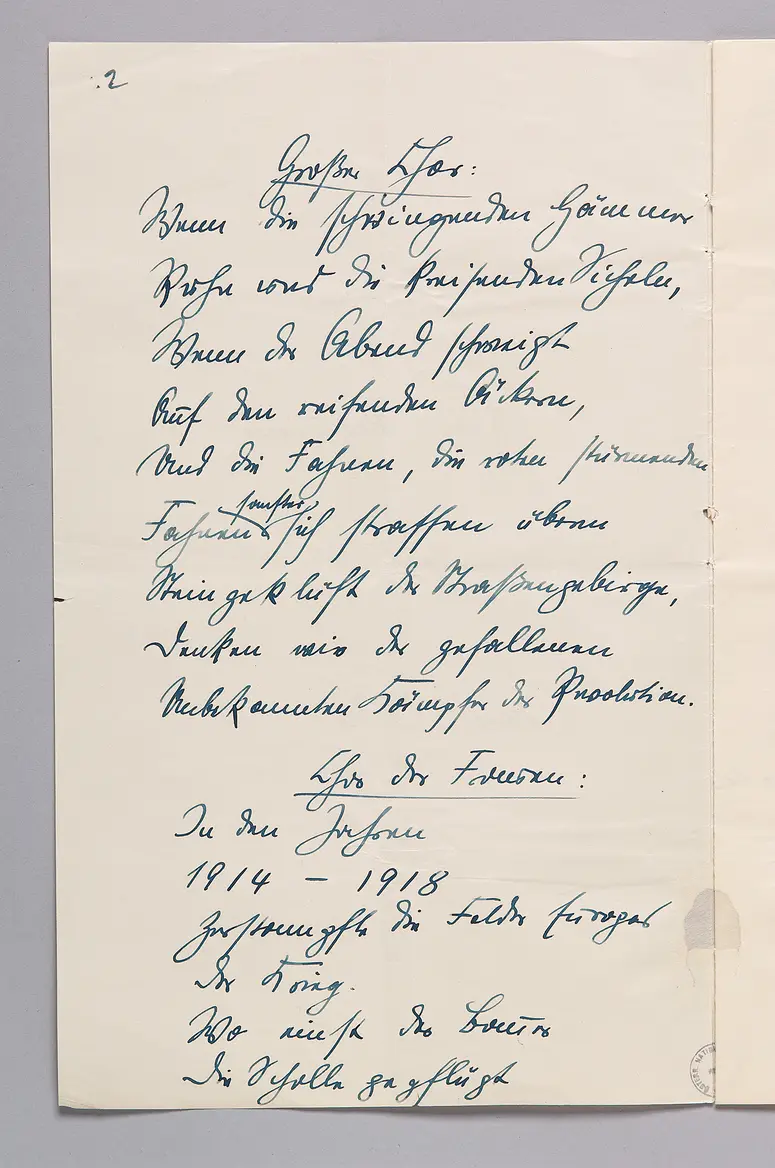 2
Großer Chor:
Wenn die schwingenden Hämmer
Ruhn und die kreisenden Sicheln,
Wenn der Abend schweigt
Auf den reifenden Äckern,
Und die Fahnen, die roten stürmenden
sanfter
Fahnen sich straffen überm
Steingeklüft der Straßengebirge,
Denken wir der gefallenen
Unbekannten Kämpfer der Revolution.
Chor der Frauen:
In den Jahren
1914 – 1918
Zerstampfte die Felder Europas
der Krieg.
Wo einst der Bauer
Die Scholle gepflügt